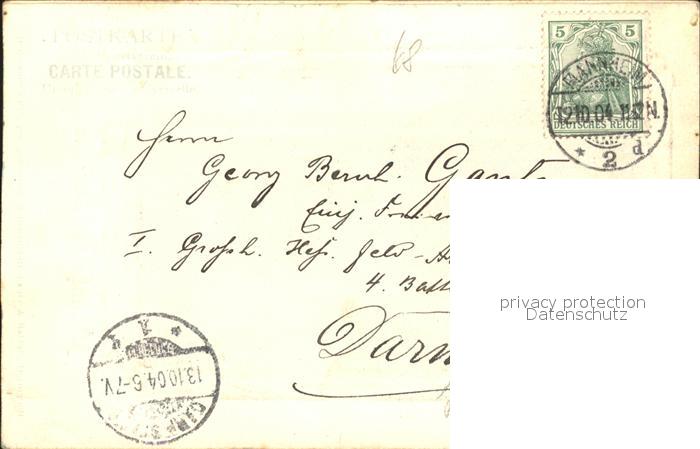 POSTKARTE
CARTE POSTALE.
68
5 5
DEUTSCHES REICH
MANNHEIM
12.10.04. 11-12 N.
* 2 d
Herrn
Georg Bernh.
Einj.
I. Grossh. Hess. Feld-
4. Batt
Darm
privacy protection
Datenschutz
* 1
13.10.04. 6-7 V.